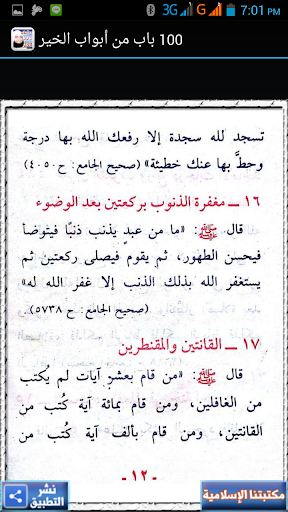 3G G 7:01 PM
100 باب من أبواب الخير
تسجد لله سجدة إلا رفعك الله بها درجة
وحطَّ بها عنك خطيئة» (صحيح الجامع: ح ٤٠٥٠)
١٦ ــ مغفرة الذنوب بركعتين بعد الوضوء
قال ﷺ: «ما من عبدٍ يذنب ذنبًا فيتوضأ
فيحسن الطهور، ثم يقوم فيصلى ركعتين ثم
يستغفر الله بذلك الذنب إلا غفر الله له»
(صحيح الجامع: ح ٥٧٣٨).
١٧ ــ القانتين والمقنطرين
قال ﷺ: «من قام بعشر آيات لم يُكتب
من الغافلين، ومن قام بمائة آية كُتب من
القانتين، ومن قام بألف آية كُتب من
- ١٢ -
مكتبتنا الإسلامية
نشر
التطبيق